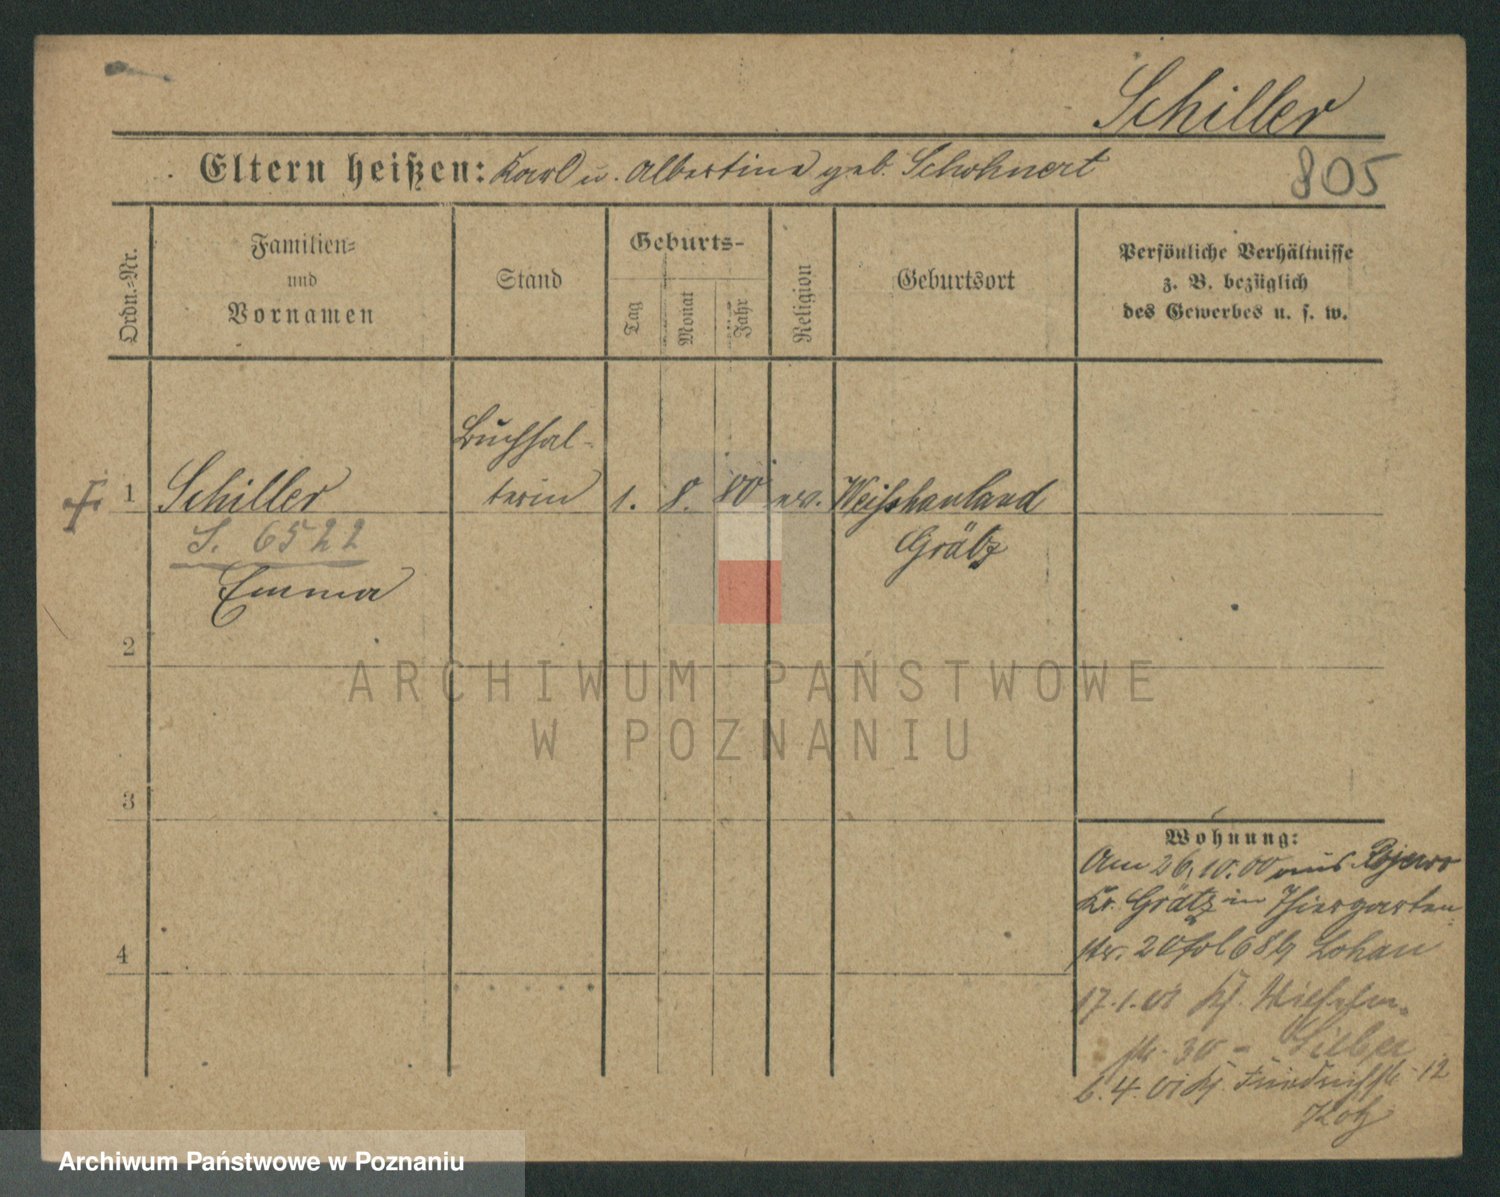 Schiller
805
Eltern heißen: Karl u. Albertine geb. Schohnert
Ordn.-Nr.
Familien-
und
Vornamen
Stand
Geburts-
Tag
Monat
Jahr
Religion
Geburtsort
Persönliche Verhältnisse
z. B. bezüglich
des Gewerbes u. s. w.
Buchhal-
1 Schiller terin 1. 8. 80 ev. Weißhauland
S. 6522
Grätz
Emma
2
3
4
Wohnung:
Am 26.10.00 aus
Kr. Grätz in Thiergarten
str. 20 Lohan
17.1.01
str. 30 –
6.4.01 Friedrichstr 12
ARCHIWUM PAŃSTWOWE
W POZNANIU
Archiwum Państwowe w Poznaniu